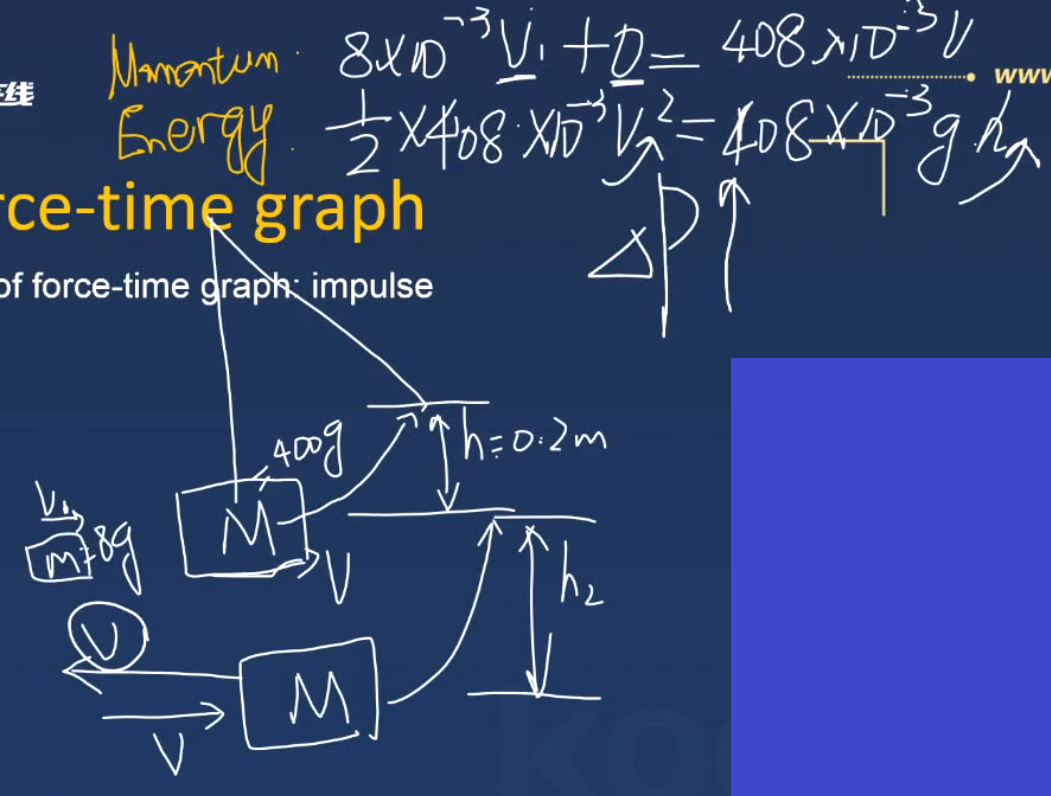 Momentum: 8×10⁻³V₁+0=408×10⁻³V
www
线
Energy. ½×408×10⁻³V²=408×10⁻³gh
rce-time graph
ΔP↑
of force-time graph: impulse
400g
h=0.2m
V₁
M
m=8g
V
h₂
V
M
V